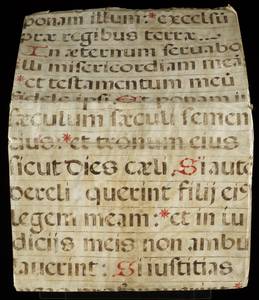 ponam illum: * excelsū
præ regibus terræ...
In æternum servabo
illi misericordiam meā
* et testamentum meū
fidele ipsi. Et ponam i
sæculum sæculi semen
eius: * et tronum eius
sicut dies cæli. Si aute
dereli querint filij ei9
legem meam: * et in iu
diciis meis non ambu
laverint: Si iustitias